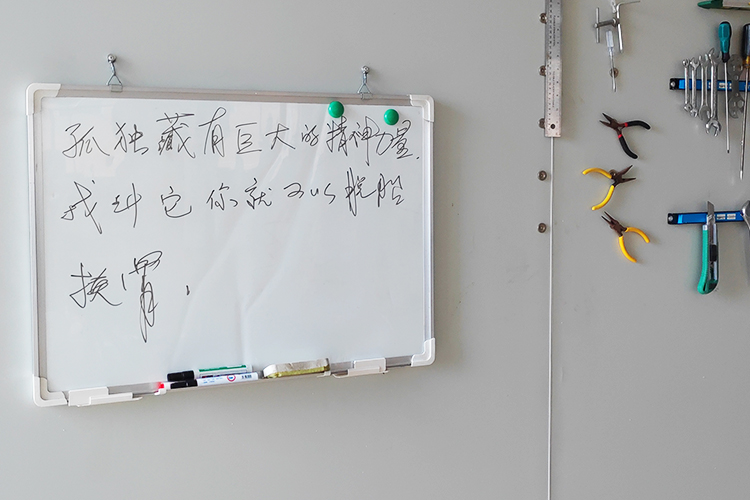 孤独藏有巨大的精神力量.
找到它你就可以脱胎
换骨.